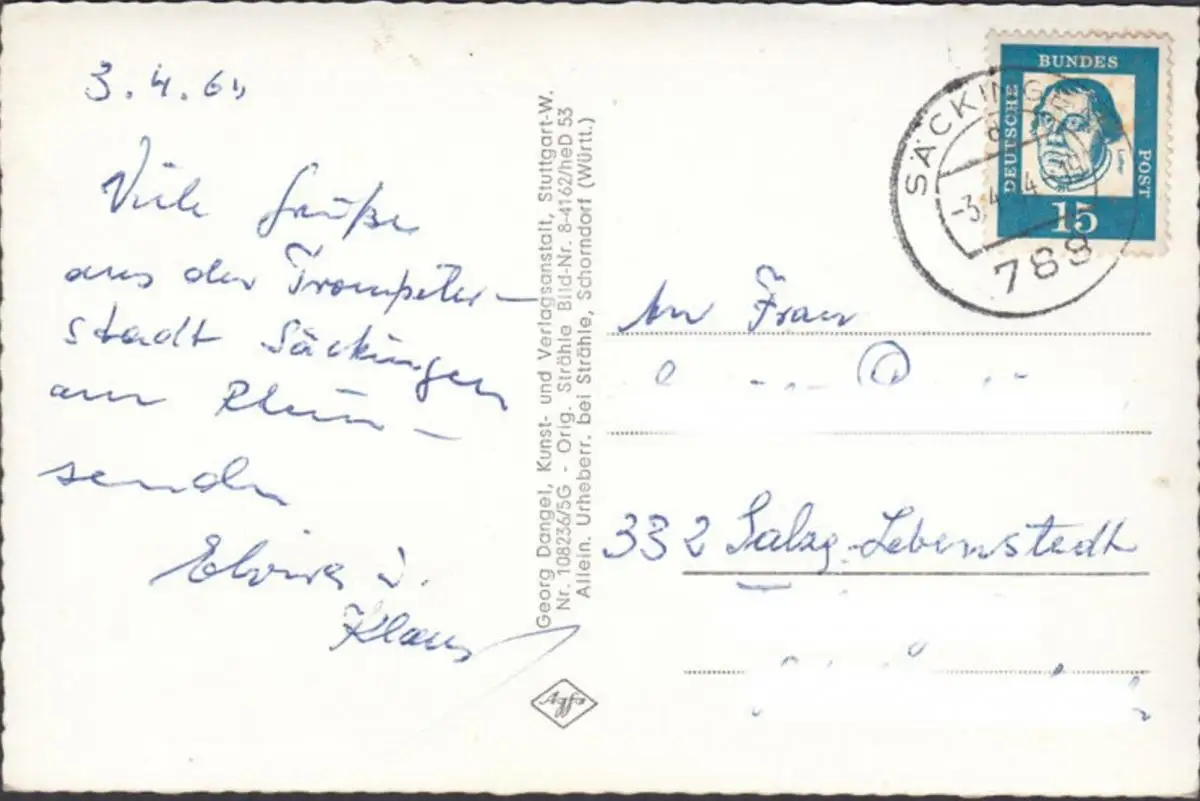 3.4.64
Viele Grüße
aus der Trompeter-
stadt Säckingen
am Rhein -
senden
Elvira u.
Klaus
Georg Dangel, Kunst- und Verlagsanstalt, Stuttgart-W.
Nr. 108236/5G - Orig. Strähle Bild-Nr. 8-4162/heD 53
Allein. Urheberr. bei Strähle, Schorndorf (Württ.)
Agfa
DEUTSCHE
BUNDES
POST
Luther
15
SÄCKINGEN
-3.4.64
788
An Frau
332 Salzg.-Lebenstedt